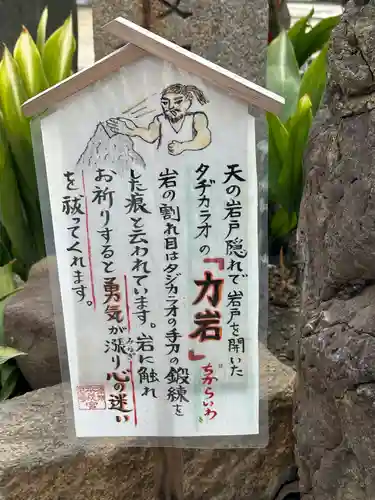 天の岩戸隠れで岩戸を開いた
タヂカラオの『力岩』
ちからいわ
岩の割れ目はタジカラオの手刀の鍛練を
した痕と云われています。岩に触れ
お祈りすると勇気が漲り心の迷い
みなぎ
を祓ってくれます。